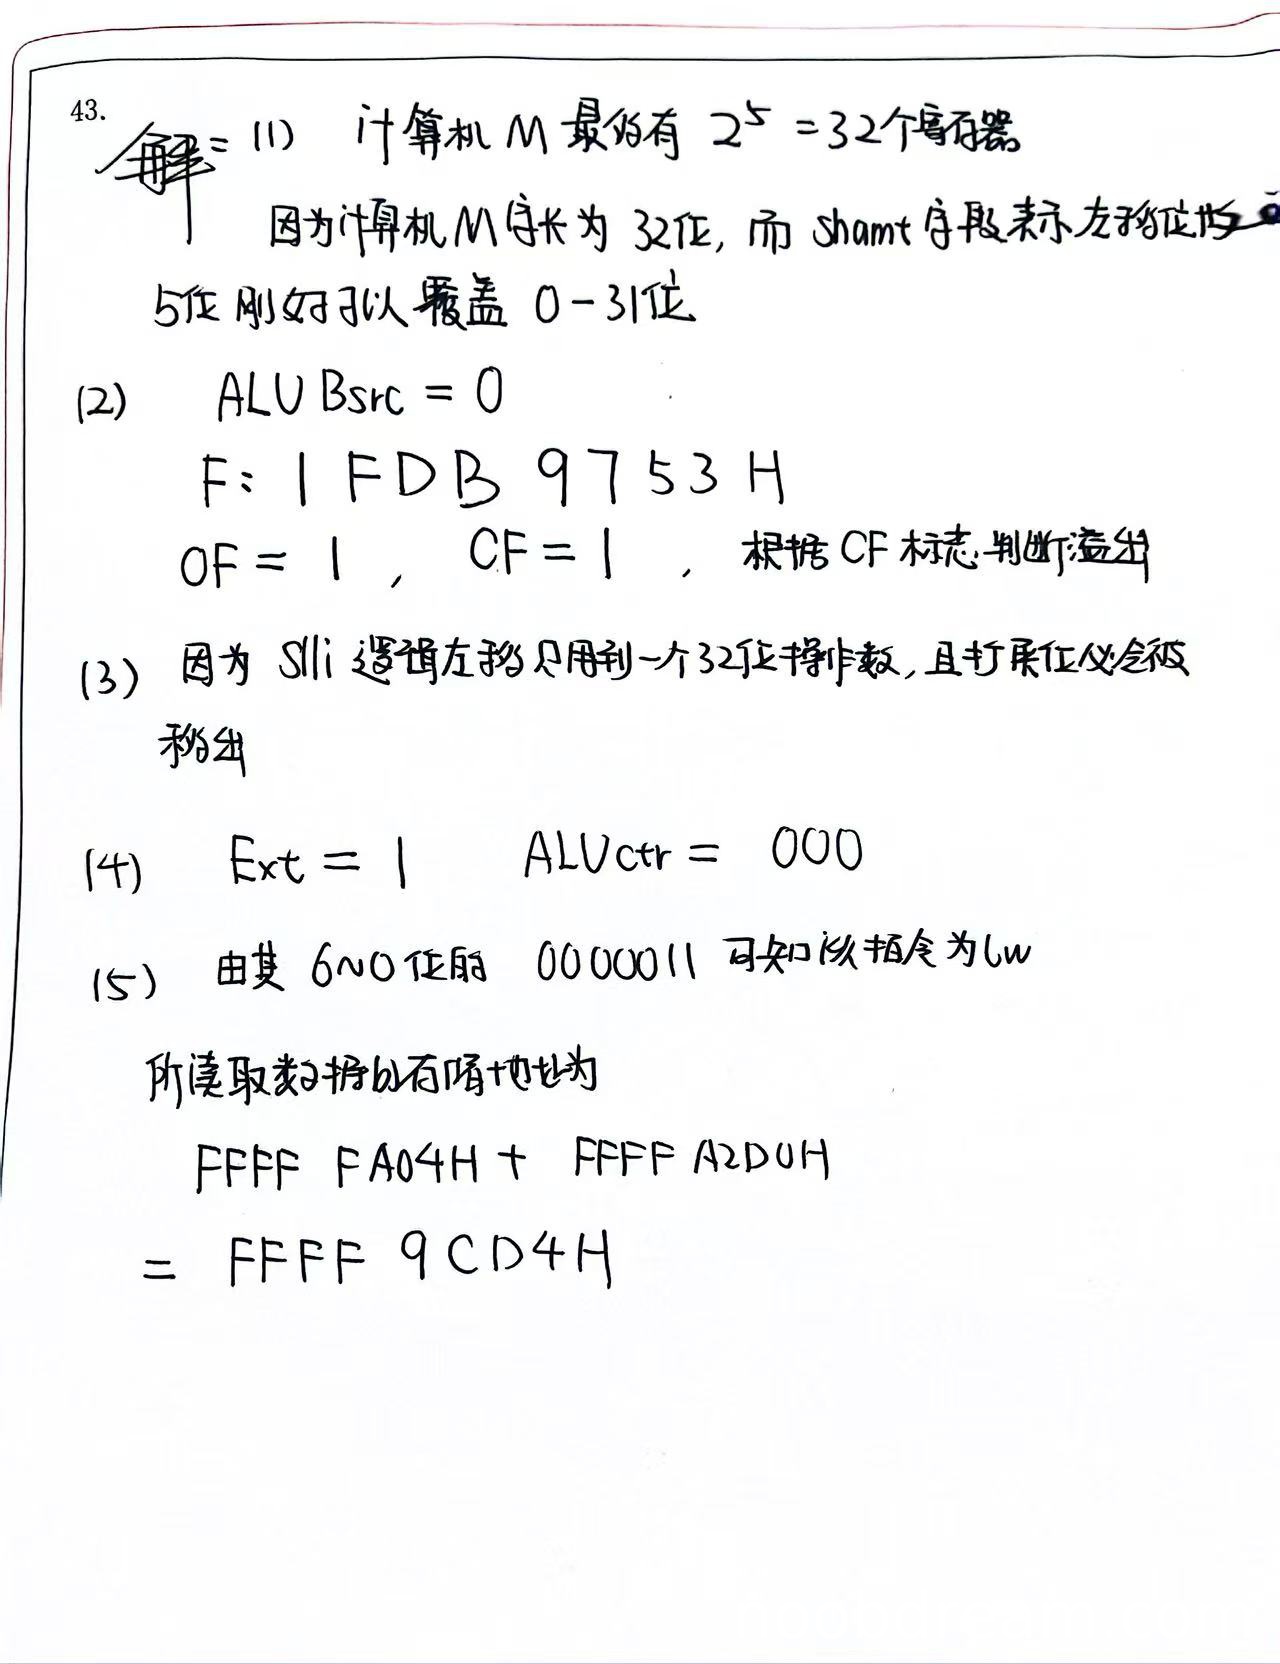 43.
解: (1) 计算机 M 最多有 2⁵ = 32个寄存器
因为计算机M字长为 32位, 而 shamt 字段表示左移位数
5位刚好可以覆盖 0-31位
(2) ALUBsrc = 0
F: 1FDB 9753H
OF = 1, CF = 1, 根据 CF 标志判断溢出
(3) 因为 slli 逻辑左移只用到一个32位操作数, 且扩展位必会被
移出
(4) Ext = 1 ALUctr = 000
(5) 由其 6~0 位的 0000011 可知该指令为lw
所读取数据的存储地址为
FFFF FA04H + FFFF A2D0H
= FFFF 9CD4H